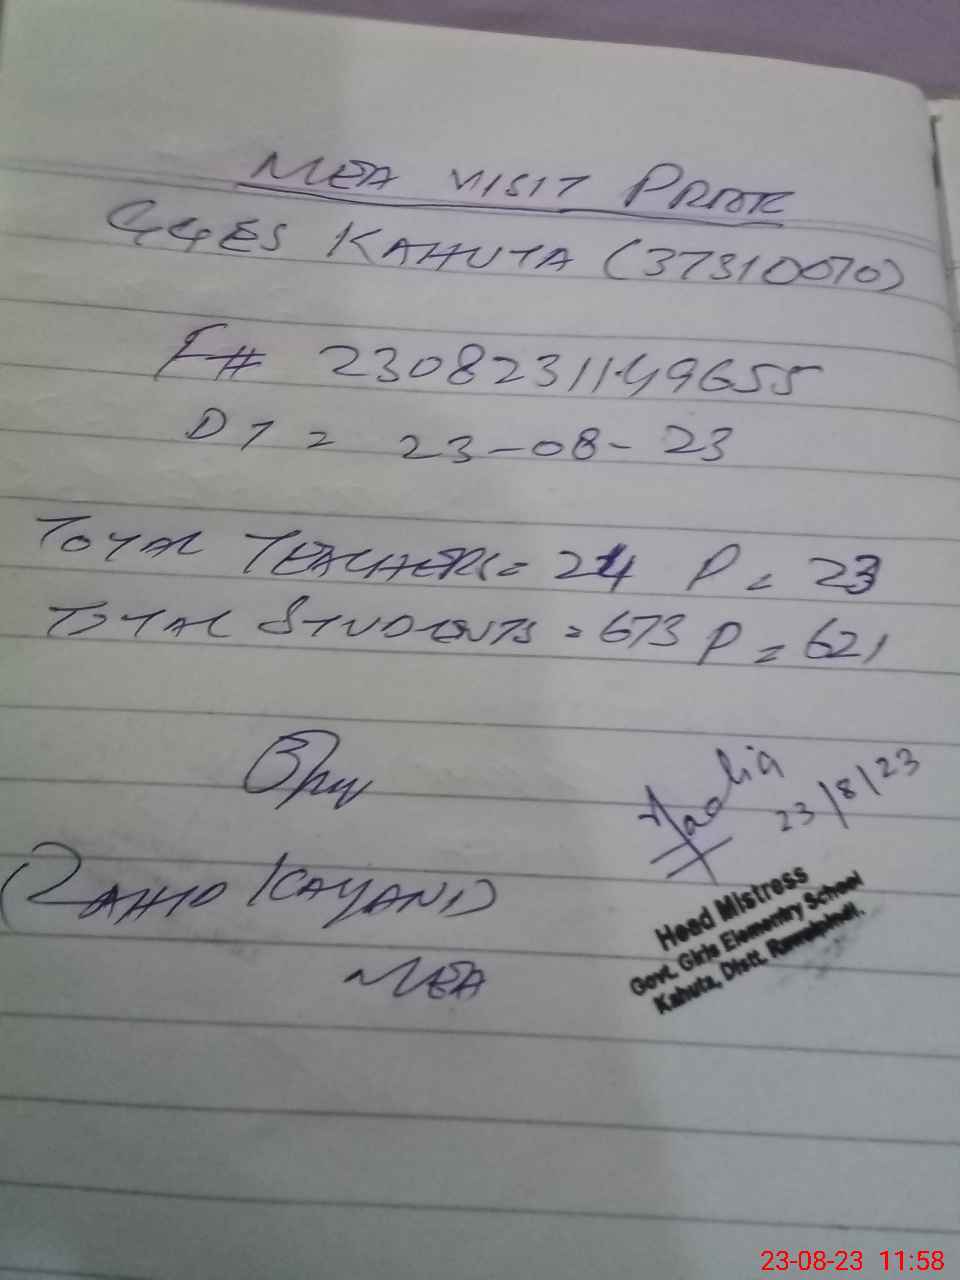 MEA VISIT PROOF
GGES KAHUTA (37310070)
F# 2308231149655
DT = 23-08-23
TOTAL TEACHERS = 24 P = 23
TOTAL STUDENTS = 673 P = 621
Nadia
23/8/23
ZAHID KAYANI
MEA
Head Mistress
Govt. Girls Elementry School
Kahuta, Distt. Rawalpindi.
23-08-23 11:58